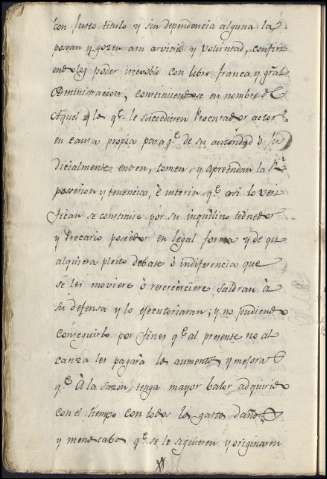 con justo titulo y sin dependencia alguna la
posean y gozen a su arvitrio y voluntad, confirien
doles poder irrevoble con libre franca y gral
Administracion, constituiendose en nombre de
Aquel o los qe. le sucedieren Procurador actor
en causa propia para qe. de su autoridad o ju
dicialmente entren, tomen, y aprendan la Rl
posesion y tenencia, e interin qe. asi lo veri
fican se constituie por su inquilino tenedor
y Precario poseedor en legal forma y de que
alquiera pleito debate o indiferencia que
se les moviere o reserciere saldran à
su defensa y lo executoriaran; y no pudiendo
conseguirlo por fines qe. al presente no al
canza les pagarà los aumentos y mejoras
qe. à la sazon, tenga mayor balor, adquirido
con el tiempo con todos los gastos daños
y menoscabos qe. se le siguieren y originaren